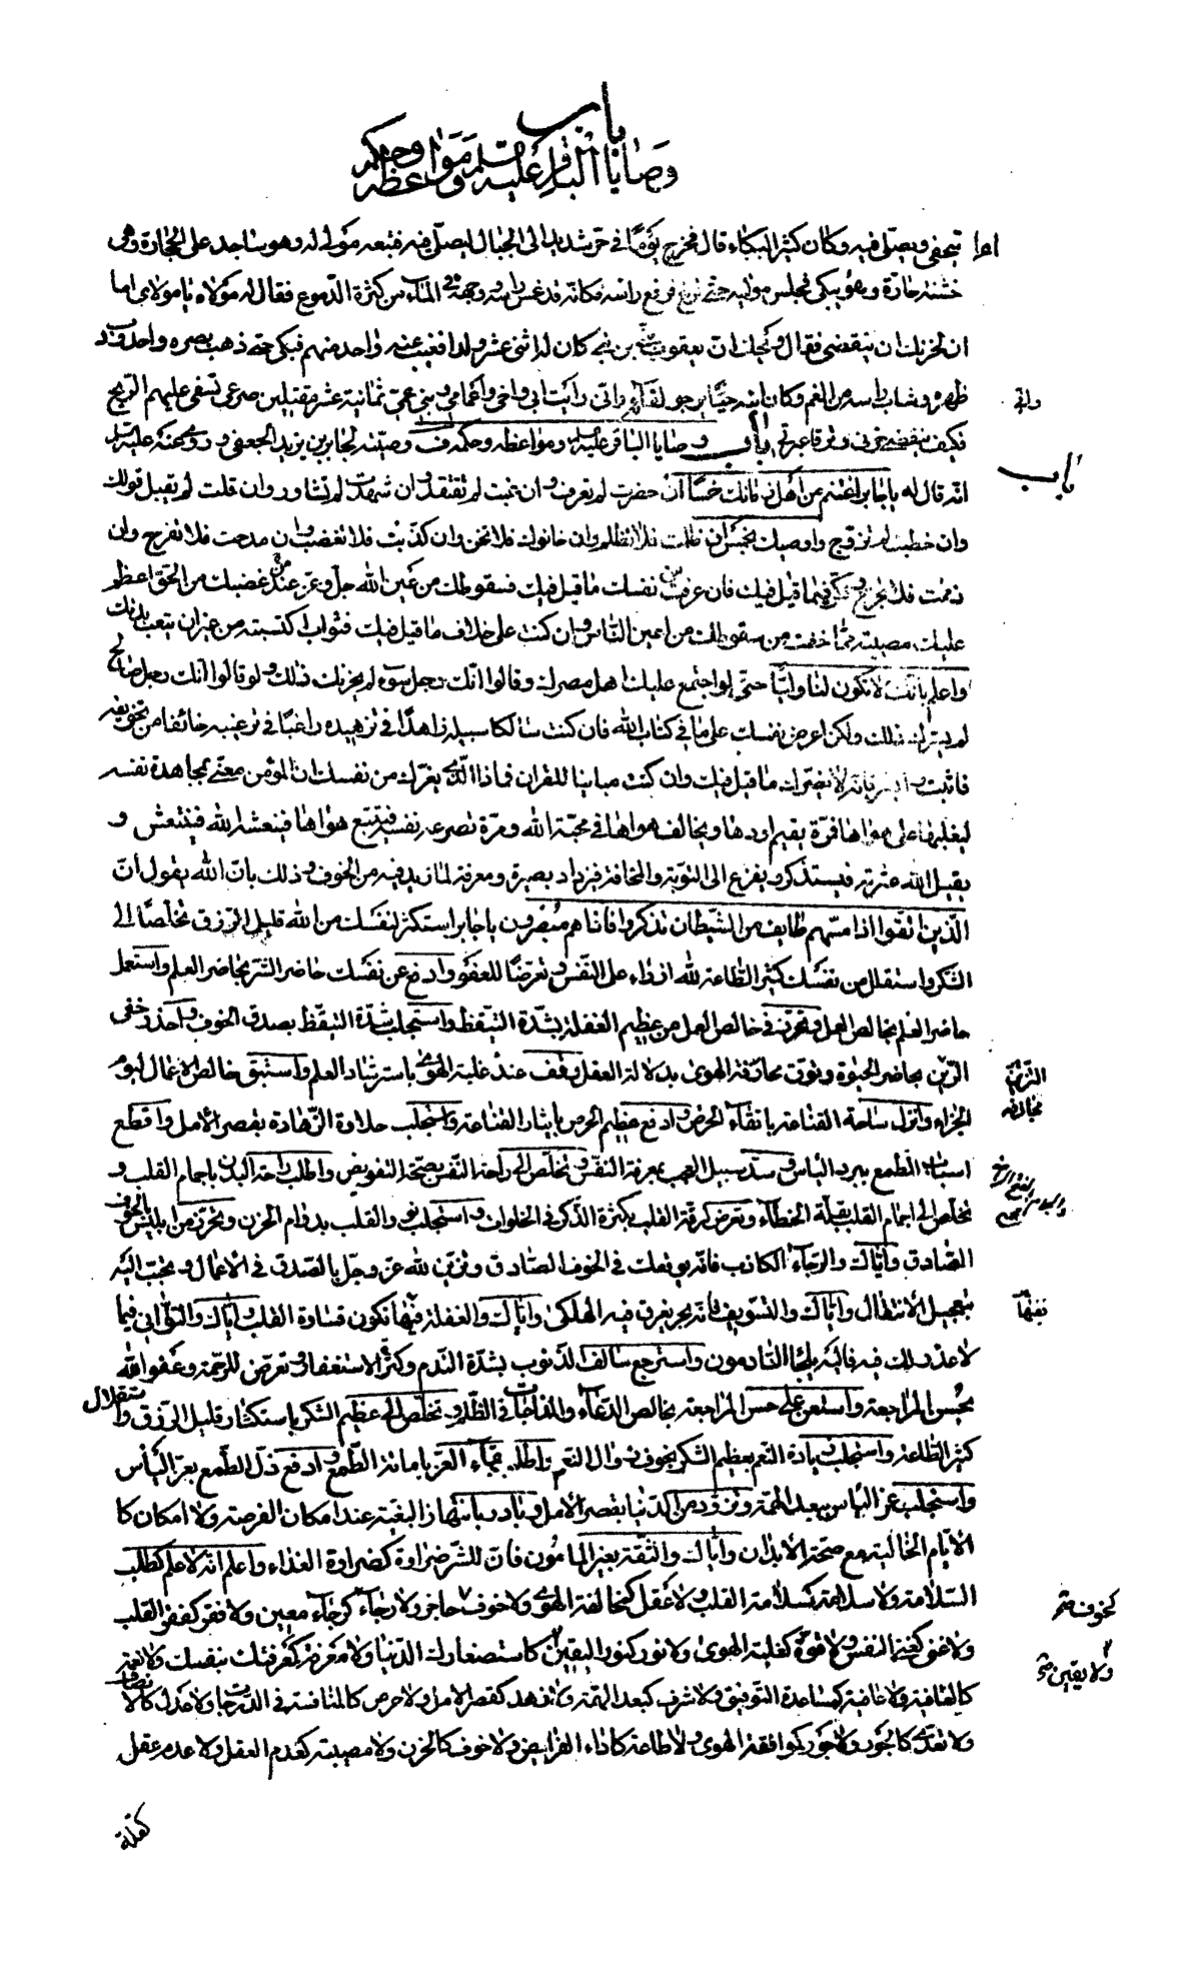 باب
وصايا الباقر عليه السلم ومواعظه وحكمه
يتخفى ويصلى فيه وكان كثير البكاء قال فخرج يوما فى حر شديد الى الجبال ليصلى فيه فتبعه مولى له وهو ساجد على الحجارة وهى
خشنة حارة وهو يبكى فجلس مولاه حتى فرغ فرفع راسه فكانه قد غمس راسه ووجهه فى الماء من كثرة الدموع فقال له مولاه يا مولاى اما
ان لحزنك ان ينقضى فقال ويحك ان يعقوب نبى بن نبى كان له اثنى عشر ولدا فغيب عنه واحد منهم فبكى حتى ذهب بصره واحدودب
ظهره وشاب راسه من الغم وكان ابنه حيا يرجو لقاءه وانى رايت ابى واخى واعمامى وبنى عمى ثمانية عشر مقتلين صرعى تسفى عليهم الريح
فكيف ينقضى حزنى وترقا عبرتى باب وصايا الباقر عليه السلم ومواعظه وحكمه ف وصيته لجابر بن يزيد الجعفى روى عنه عليه السلم
انه قال له يا جابر اغتنم من اهل زمانك خمسا ان حضرت لم تعرف وان غبت لم تفتقد وان شهدت لم تشاور وان قلت لم يقبل قولك
وان خطبت لم تزوج واوصيك بخمس ان ظلمت فلا تظلم وان خانوك فلا تخن وان كذبت فلا تغضب وان مدحت فلا تفرح وان
ذممت فلا تجزع وفكر فيما قيل فيك فان عرفت من نفسك ما قيل فيك فسقوطك من عين الله جل وعز عند غضبك من الحق اعظم
عليك مصيبة مما خفت من سقوطك من اعين الناس وان كنت على خلاف ما قيل فيك فثواب اكتسبته من غير ان يتعب بدنك
واعلم بانك لا تكون لنا وليا حتى لو اجتمع عليك اهل مصرك وقالوا انك رجل سوء لم يحزنك ذلك ولو قالوا انك رجل صالح
لم يسرك ذلك ولكن اعرض نفسك على ما فى كتاب الله فان كنت سالكا سبيله زاهدا فى تزهيده راغبا فى ترغيبه خائفا من تخويفه
فاثبت وابشر فانه لا يضرك ما قيل فيك وان كنت مباينا للقران فماذا الذى يغرك من نفسك ان المؤمن معنى بمجاهدة نفسه
ليغلبها على هواها فمرة يقيم اودها ويخالف هواها فى محبة الله ومرة تصرعه نفسه فيتبع هواها فينعشه الله فينتعش و
يقيل الله عثرته فيستذكر ويفزع الى التوبة والمخافة فيزداد بصيرة ومعرفة لما زيد فيه من الخوف وذلك بان الله يقول ان
الذين اتقوا اذا مسهم طايف من الشيطان تذكروا فاذا هم مبصرون يا جابر استكثر لنفسك من الله قليل الرزق تخلصا الى
الشكر واستقلل من نفسك كثير الطاعة لله ازراء على النفس وتعرضا للعفو وادفع عن نفسك حاضر الشر بحاضر العلم واستعمل
حاضر العلم بخالص العمل وتحرز فى خالص العمل من عظيم الغفلة بشدة التيقظ واستجلب شدة التيقظ بصدق الخوف واحذر خفى
الزين بحاضر الحيوة وتوق مجازفة الهوى بدلالة العقل وقف عند غلبة الهوى باسترشاد العلم واستبق خالص الاعمال ليوم
الجزاء وانزل ساحة القناعة باتقاء الحرص وادفع عظيم الحرص بايثار القناعة واستجلب حلاوة الزهادة بقصر الامل واقطع
اسباب الطمع ببرد الياس وسد سبيل العجب بمعرفة النفس وتخلص الى راحة النفس بصحة التفويض واطلب راحة البدن باجمام القلب و
تخلص الى اجمام القلب بقلة الخطاء وتعرض لرقة القلب بكثرة الذكر فى الخلوات واستجلب نور القلب بدوام الحزن وتحرز من ابليس بالخوف
الصادق واياك والرجاء الكاذب فانه يوقعك فى الخوف الصادق وتزين لله عز وجل بالصدق فى الاعمال وتحبب اليه
بتعجيل الانتقال واياك والتسويف فانه بحر يغرق فيه الهلكى واياك والغفلة ففيها تكون قساوة القلب واياك والتوانى فيما
لا عذر لك فيه فاليه يلجا النادمون واسترجع سالف الذنوب بشدة الندم وكثرة الاستغفار وتعرض للرحمة وعفو الله
بحسن المراجعة واستعن على حسن المراجعة بخالص الدعاء والمناجات فى الظلم وتخلص الى عظيم الشكر باستكثار قليل الرزق واستقلال
كثير الطاعة واستجلب زيادة النعم بعظيم الشكر بخوف زوال النعم واطلب بقاء العز باماتة الطمع وادفع ذل الطمع بعز الياس
واستجلب عز الياس ببعد الهمة وتزود من الدنيا بقصر الامل وبادر بانتهاز البغية عند امكان الفرصة ولا امكان كا
الايام الخالية مع صحة الابدان واياك والثقة بغير المامون فان للشر ضراوة كضراوة الغذاء واعلم انه لا علم كطلب
السلامة ولا سلامة كسلامة القلب ولا عقل كمخالفة الهوى ولا خوف حاجز ولا رجاء كرجاء معين ولا فقر كفقر القلب
ولا غنى كغنى النفس ولا قوة كغلبة الهوى ولا نور كنور اليقين كاستصغارك الدنيا ولا معرفة كمعرفتك بنفسك ولا نعمة
كالعافية ولا عافية كمساعدة التوفيق ولا شرف كبعد الهمة ولا زهد كقصر الامل ولا حرص كالمنافسة فى الدرجات ولا عدل كالانصاف
ولا تعدى كالجور ولا جور كموافقة الهوى ولا طاعة كاداء الفرايض ولا خوف كالحزن ولا مصيبة كعدم العقل ولا عدم عقل
كقلة
وانى
باب
التزين
مجازفة
ففيها
كخوف
ولا يقين